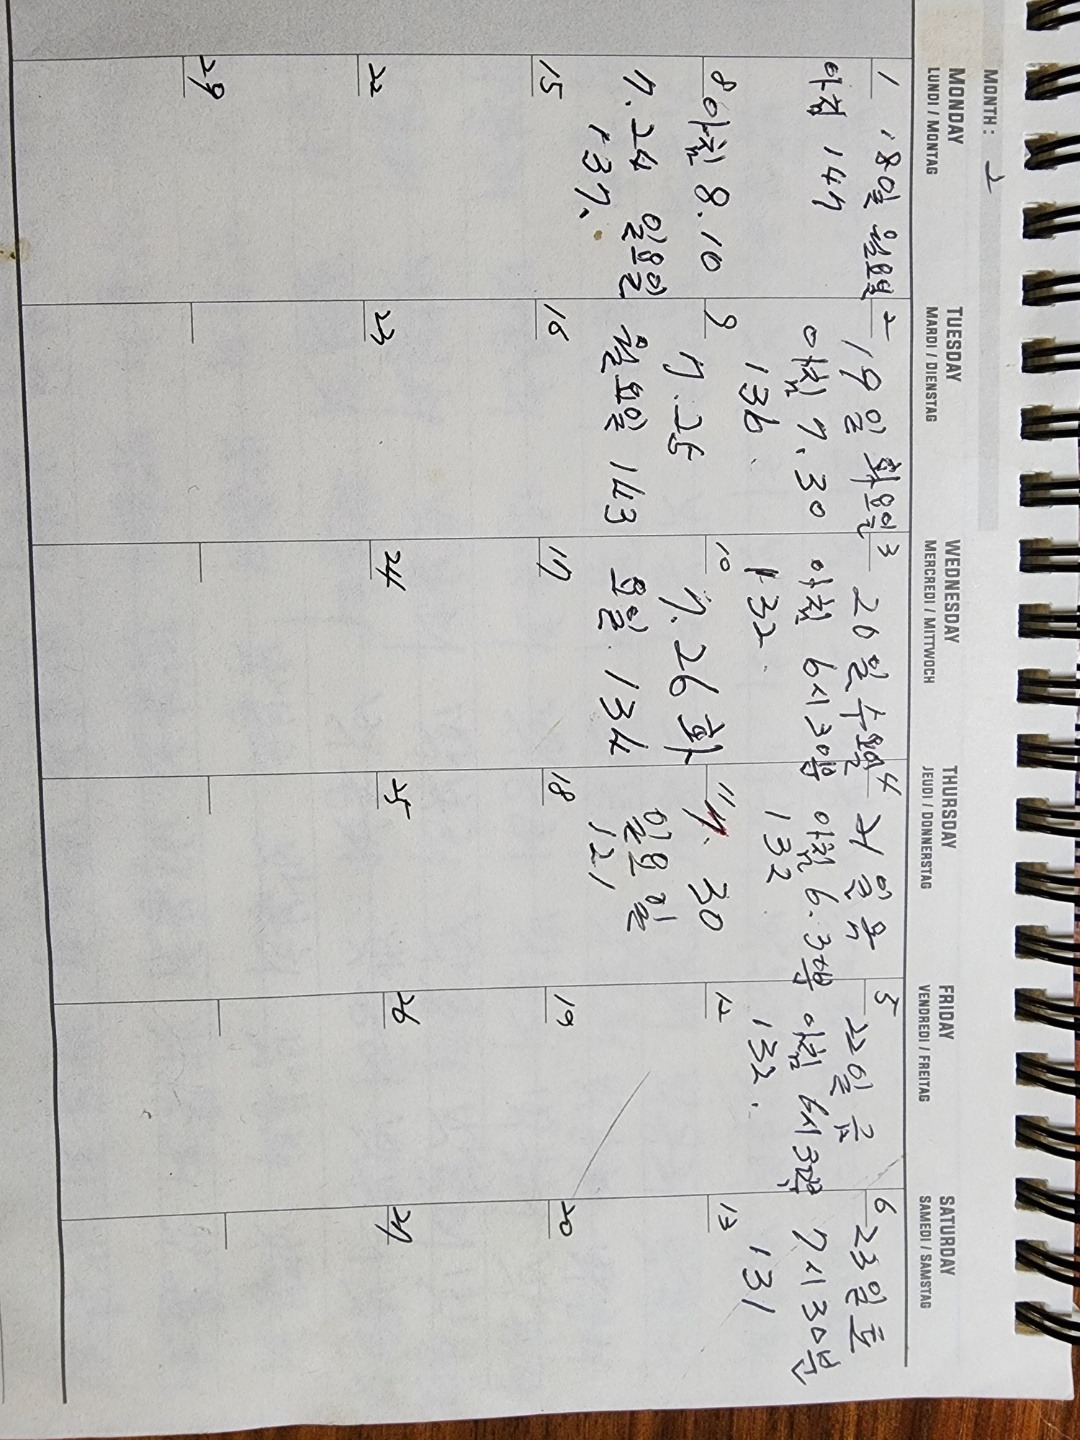 MONTH : 2
MONDAY
LUNDI / MONTAG
TUESDAY
MARDI / DIENSTAG
WEDNESDAY
MERCREDI / MITTWOCH
THURSDAY
JEUDI / DONNERSTAG
FRIDAY
VENDREDI / FREITAG
SATURDAY
SAMEDI / SAMSTAG
1
18일 월요일
아침 147
2
19일 화요일
아침 7.30
136.
3
20일 수요일
아침 6시30분
132.
4
21일 목
아침 6.30분
132.
5
22일 금
아침 6시30분
132.
6
23일 토
7시30분
131
8
아침 8.10
7.24 일요일
137.
9
7.25
월요일 143
10
7.26 화
요일. 134
11
7. 30
일요일
121
12
13
15
16
17
18
19
20
22
23
24
25
26
27
29